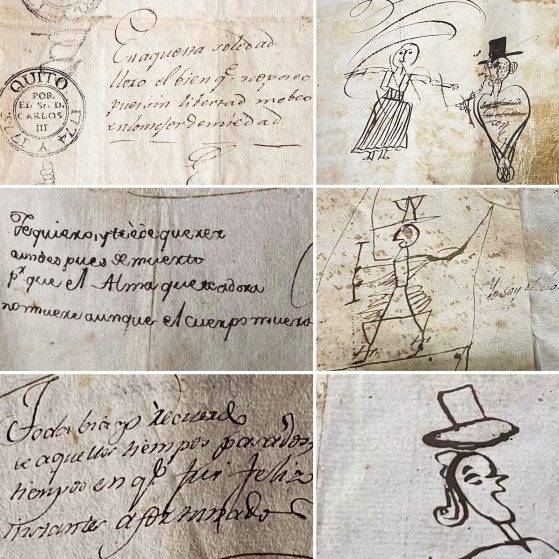 QUITO
POR.
EL Sr. D.
CARLOS
III
1774 Y 177
En aquesta soledad
lloro el bien qe. no poseo
pues sin libertad me beo
en lo mejor de mi edad
Te quiero, y te e de querer
aun despues de muerto
pr. que el Alma que te adora
no muere aunque el cuerpo muera
Y
yo soy el
Toda bia yo recuerdo
de aquellos tiempos pasados
tiempos en qe. fui feliz
instantes afortunados